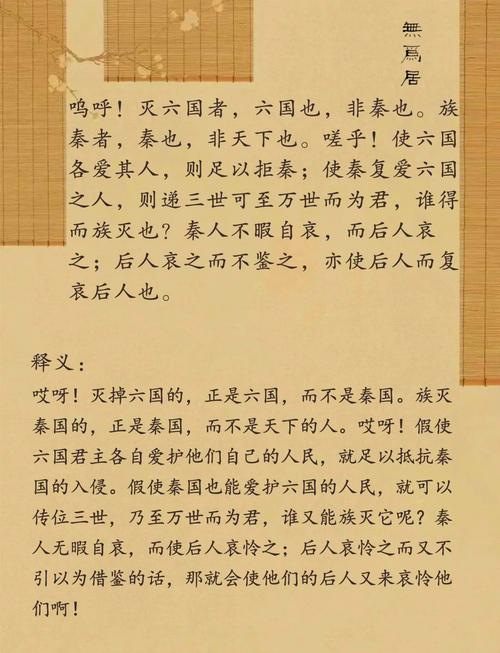 無為居
呜呼！灭六国者，六国也，非秦也。族
秦者，秦也，非天下也。嗟乎！使六国
各爱其人，则足以拒秦；使秦复爱六国
之人，则递三世可至万世而为君，谁得
而族灭也？秦人不暇自哀，而后人哀
之；后人哀之而不鉴之，亦使后人而复
哀后人也。
释义：
哎呀！灭掉六国的，正是六国，而不是秦国。族灭
秦国的，正是秦国，而不是天下的人。哎呀！假使
六国君主各自爱护他们自己的人民，就足以抵抗秦
国的入侵。假使秦国也能爱护六国的人民，就可以
传位三世，乃至万世而为君，谁又能族灭它呢？秦
人无暇自哀，而使后人哀怜之；后人哀怜之而又不
引以为借鉴的话，那就会使他们的后人又来哀怜他
们啊！